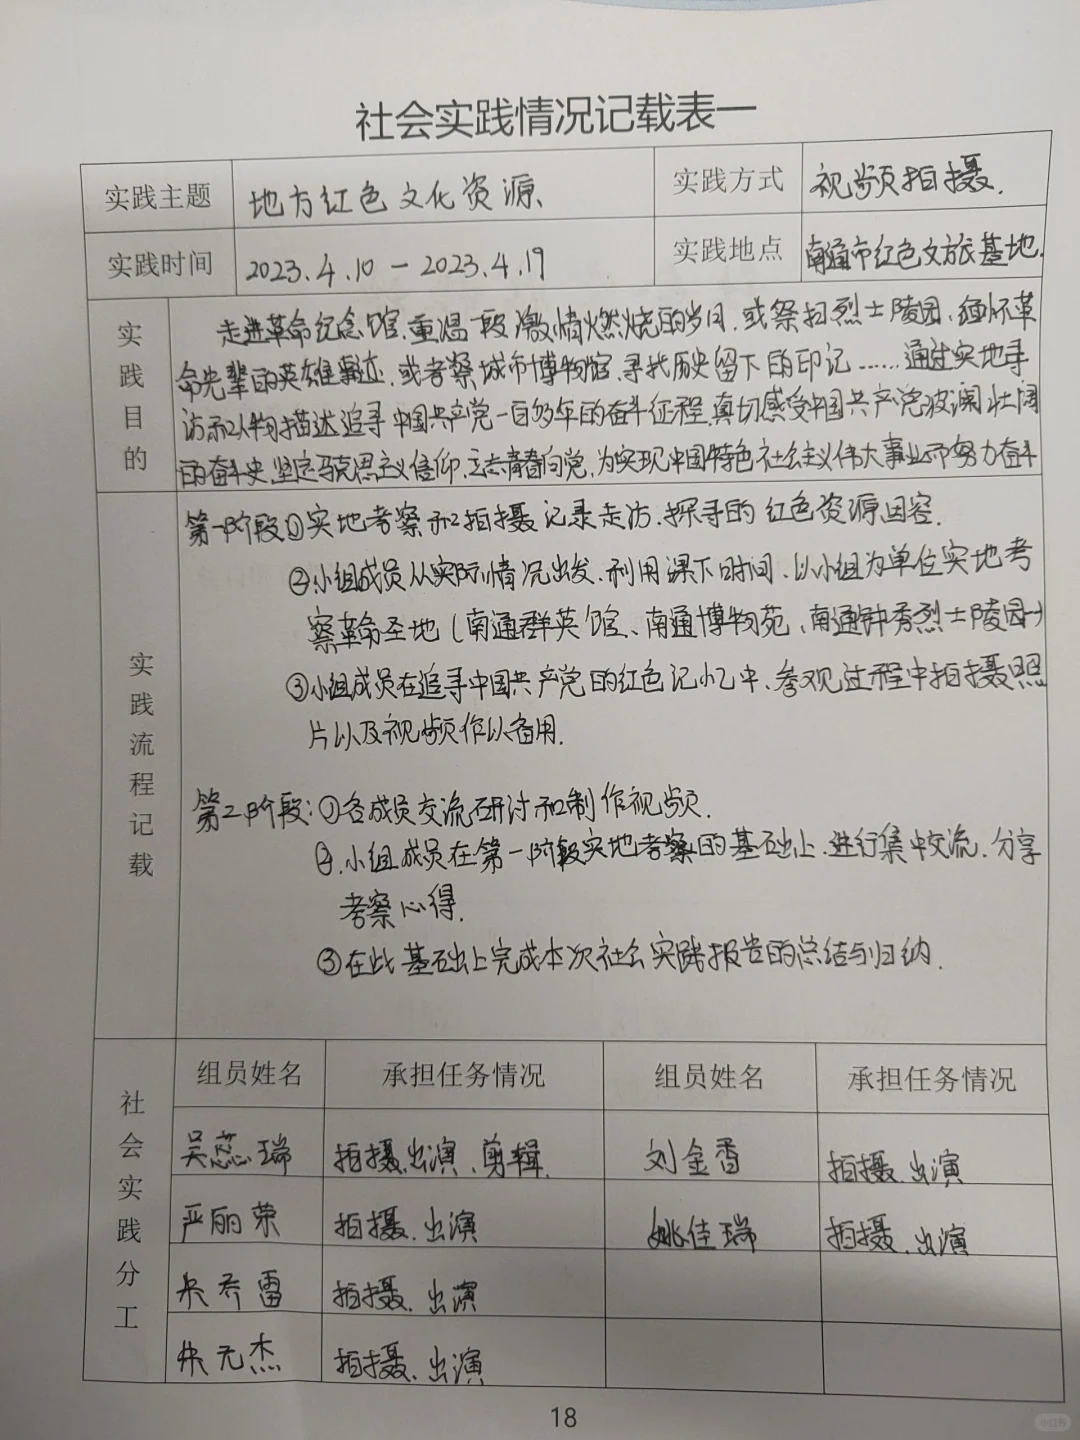 社会实践情况记载表一
实践主题 地方红色文化资源、 实践方式 视频拍摄.
实践时间 2023.4.10-2023.4.19 实践地点 南通市红色文旅基地.
实践目的
走进革命纪念馆、重温一段激情燃烧的岁月、或祭扫烈士陵园、缅怀革
命先辈的英雄事迹、或考察城市博物馆、寻找历史留下的印记……通过实地寻
访和人物描述追寻中国共产党一百多年的奋斗征程,真切感受中国共产党波澜壮阔
的奋斗史,坚定马克思主义信仰、立志青春向党,为实现中国特色社会主义伟大事业而努力奋斗
实践流程记载
第一阶段①实地考察和拍摄记录走访、探寻的红色资源内容.
②小组成员从实际情况出发、利用课下时间、以小组为单位实地考
察革命圣地(南通群英馆、南通博物苑、南通钟秀烈士陵园…)
③小组成员在追寻中国共产党的红色记忆中、参观过程中拍摄照
片以及视频作以备用.
第二阶段:①各成员交流研讨和制作视频.
②.小组成员在第一阶段实地考察的基础上、进行集中交流、分享
考察心得.
③在此基础上完成本次社会实践报告的总结与归纳.
社会实践分工
组员姓名 承担任务情况 组员姓名 承担任务情况
吴蕊瑞 拍摄、出演、剪辑. 刘金香 拍摄、出演
严丽荣 拍摄、出演 姚佳瑞 拍摄、出演
乔雷 拍摄、出演
朱元杰 拍摄、出演
18
小红书